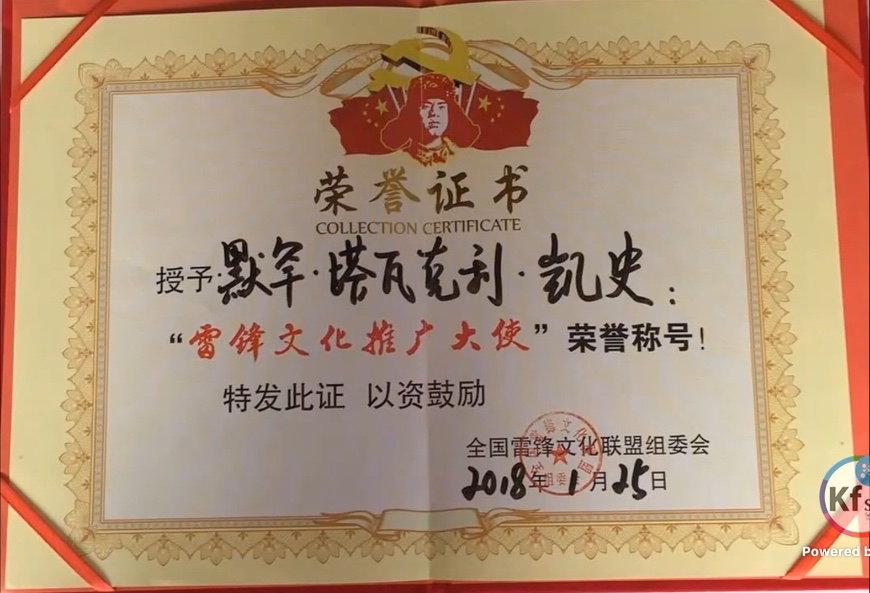 荣誉证书
COLLECTION CERTIFICATE
授予:默罕·塔瓦克利·凯史:
“雷锋文化推广大使”荣誉称号!
特发此证 以资鼓励
全国雷锋文化联盟组委会
2018年1月25日
Kf
Powered b